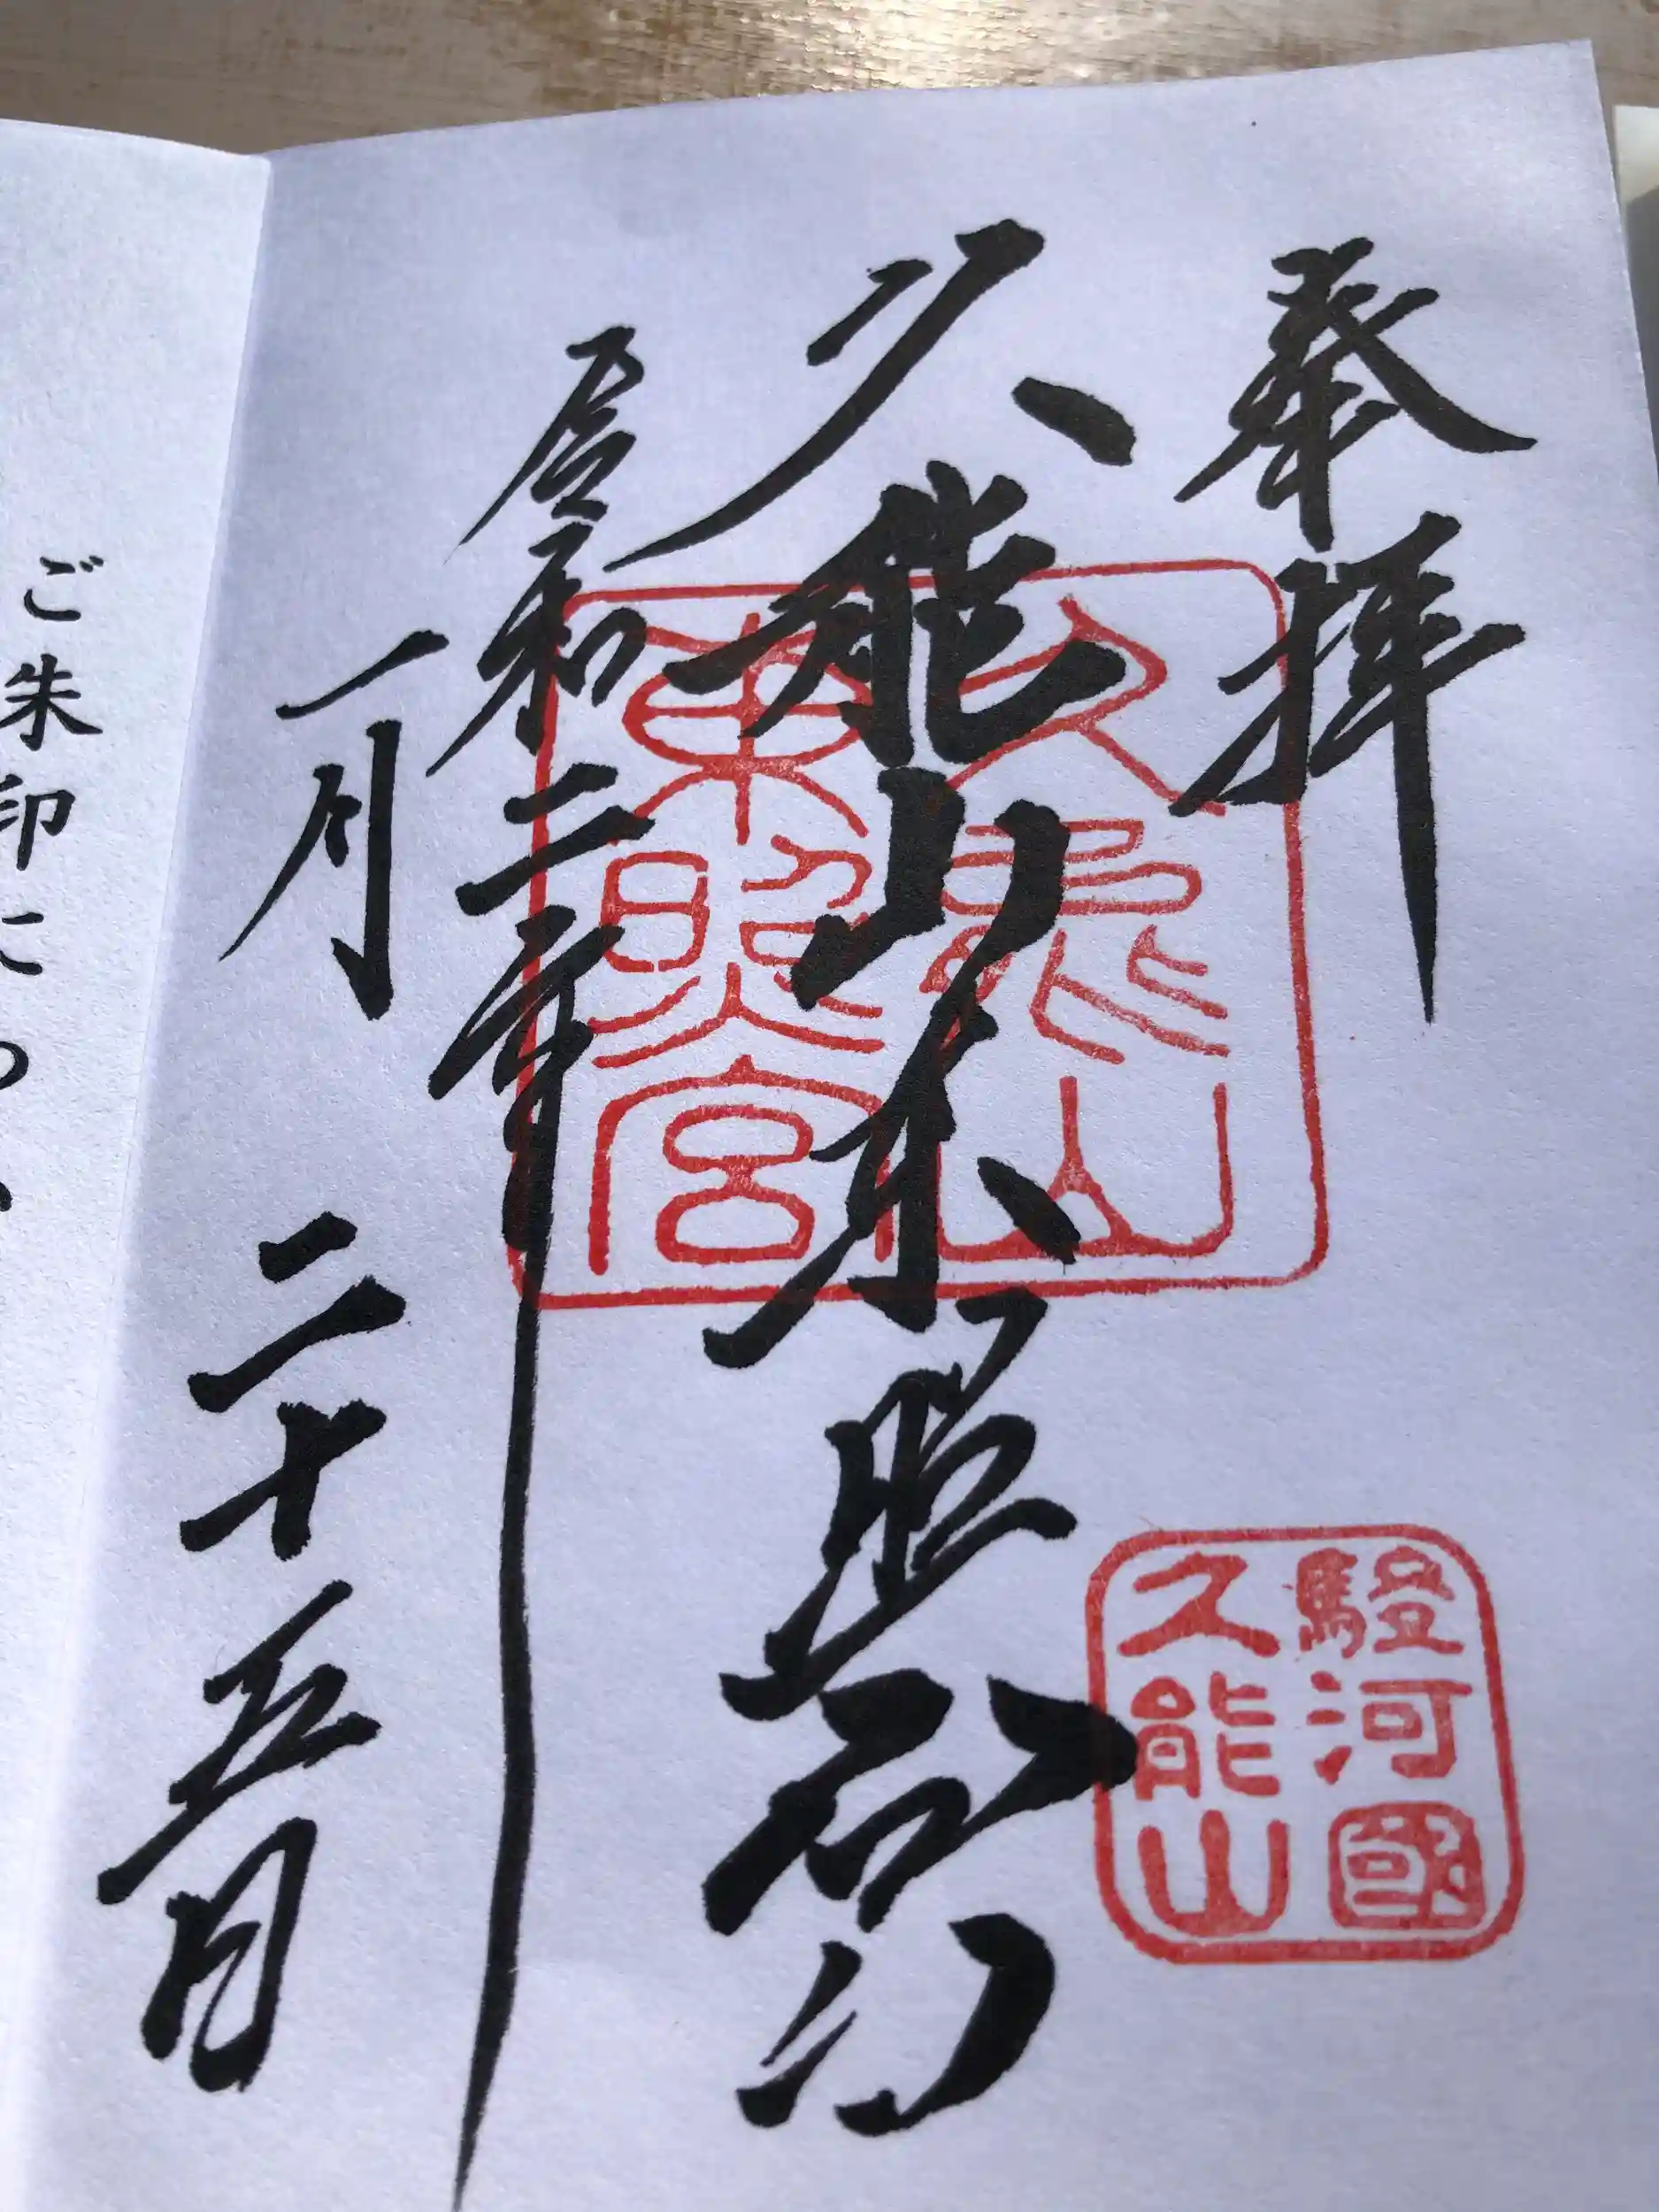 奉拝
久能山東照宮
令和二年
一月二十五日
久能山
東照宮
駿河國
久能山
ご朱印に